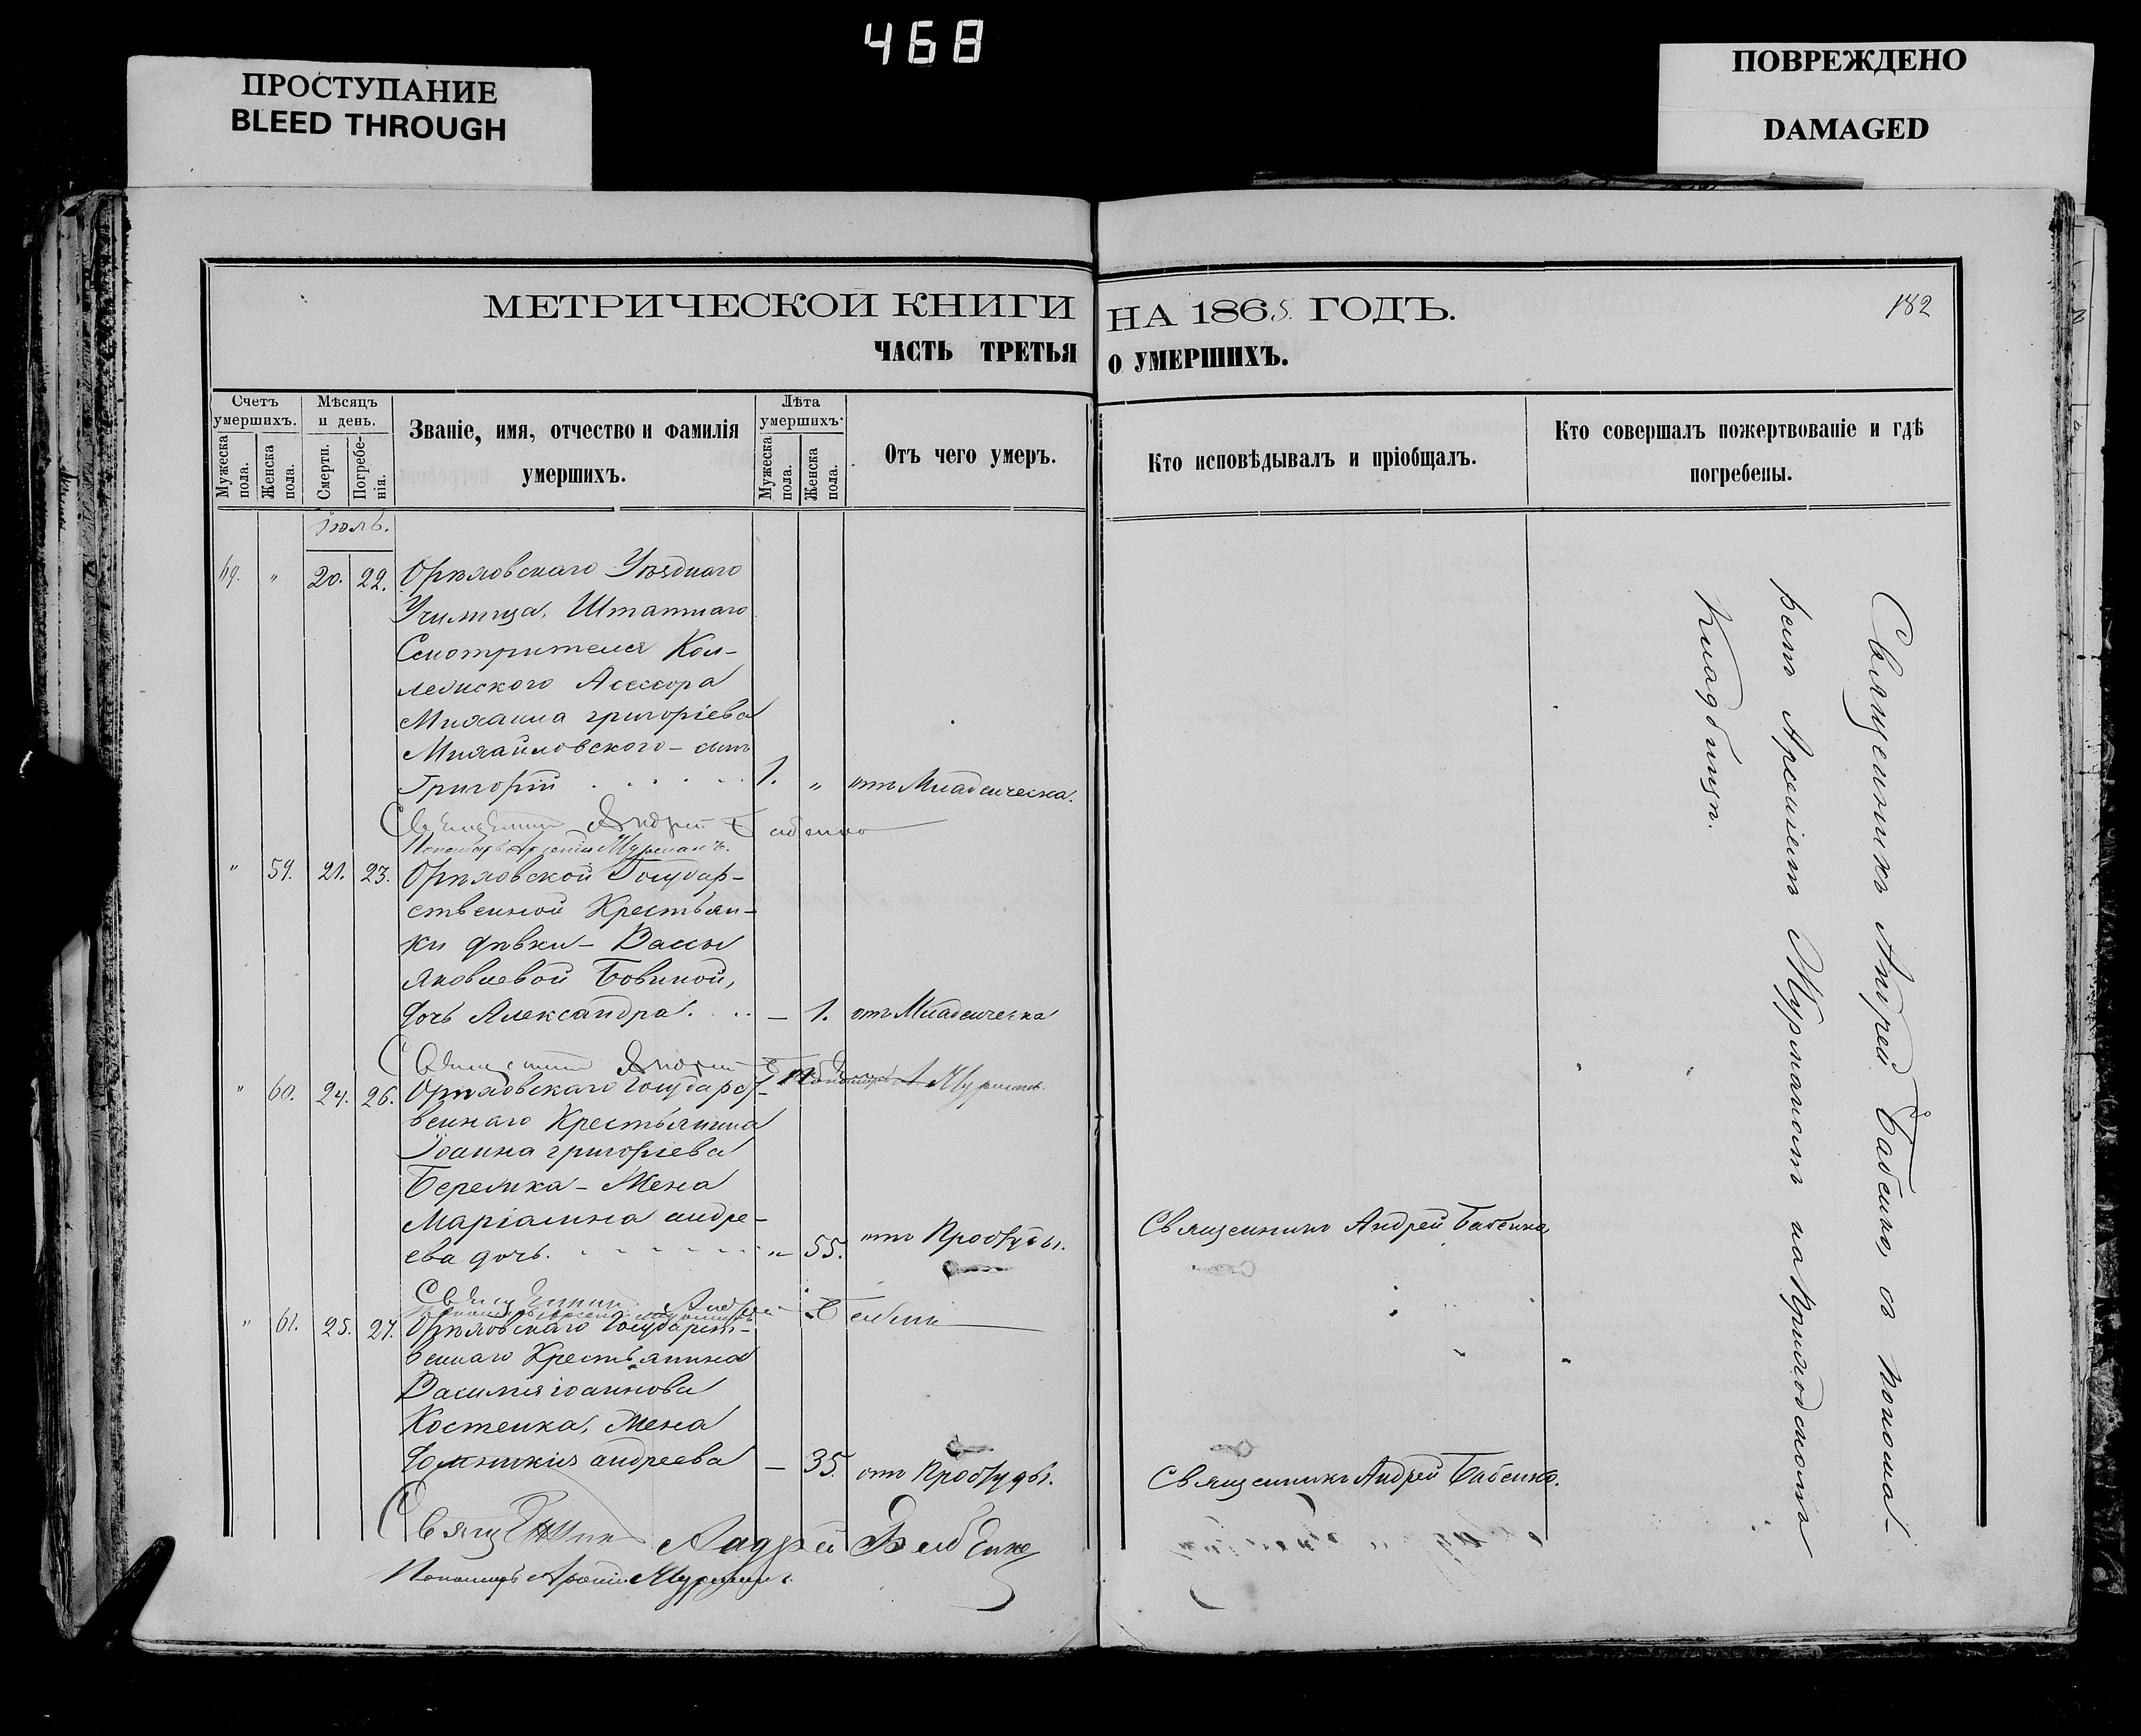 468
ПРОСТУПАНИЕ
BLEED THROUGH
ПОВРЕЖДЕНО
DAMAGED
МЕТРИЧЕСКОЙ КНИГИ НА 1865. ГОДЪ.
182
ЧАСТЬ ТРЕТЬЯ О УМЕРШИХЪ.
Счетъ умершихъ.
Мужеска пола.
Женска пола.
Мѣсяцъ и день.
Смерти.
Погребенія.
Званіе, имя, отчество и фамилія
умершихъ.
Лѣта умершихъ.
Мужеска пола.
Женска пола.
Отъ чего умеръ.
Кто исповѣдывалъ и пріобщалъ.
Кто совершалъ пожертвованіе и гдѣ
погребены.
Іюль.
69. " 20. 22. Орѣховскаго Уѣзднаго
Училища, Штатнаго
Смотрителя Кол-
лежскаго Асессора
Михаила григоріева
Михайловского – сынъ
Григорій 1. " отъ Младенческа.
Священникъ Андрей Бабенко
Пономарь Арсеній Мурманъ.
" 59. 21. 23. Орѣховской Государ-
ственной Крестьян-
ки дѣвки –
Яковлевой
дочь Александра. – 1. отъ Младенческа
Священникъ Андрей Бабенко
Пономарь А Мурманъ.
" 60. 24. 26. Орѣховскаго Государст-
веннаго Крестьянина
Іоанна григоріева
– Жена
Маріамна андре-
ева дочь. " 55. отъ Простуды. Священникъ Андрей Бабенко
Священникъ Андрей Бабенко
" 61. 25. 27. Орѣховскаго Государст-
веннаго Крестьянина
Василія іоаннова
Костенка, Жена
Домникія андреева – 35. отъ Простуды. Священникъ Андрей Бабенко.
Священникъ Андрей Бабенко
Пономарь Арсеній Мурманъ
Священникъ Андрей Бабенко, съ понома-
ремъ Арсеніемъ Мурманомъ на Приходскомъ
Кладбищѣ.